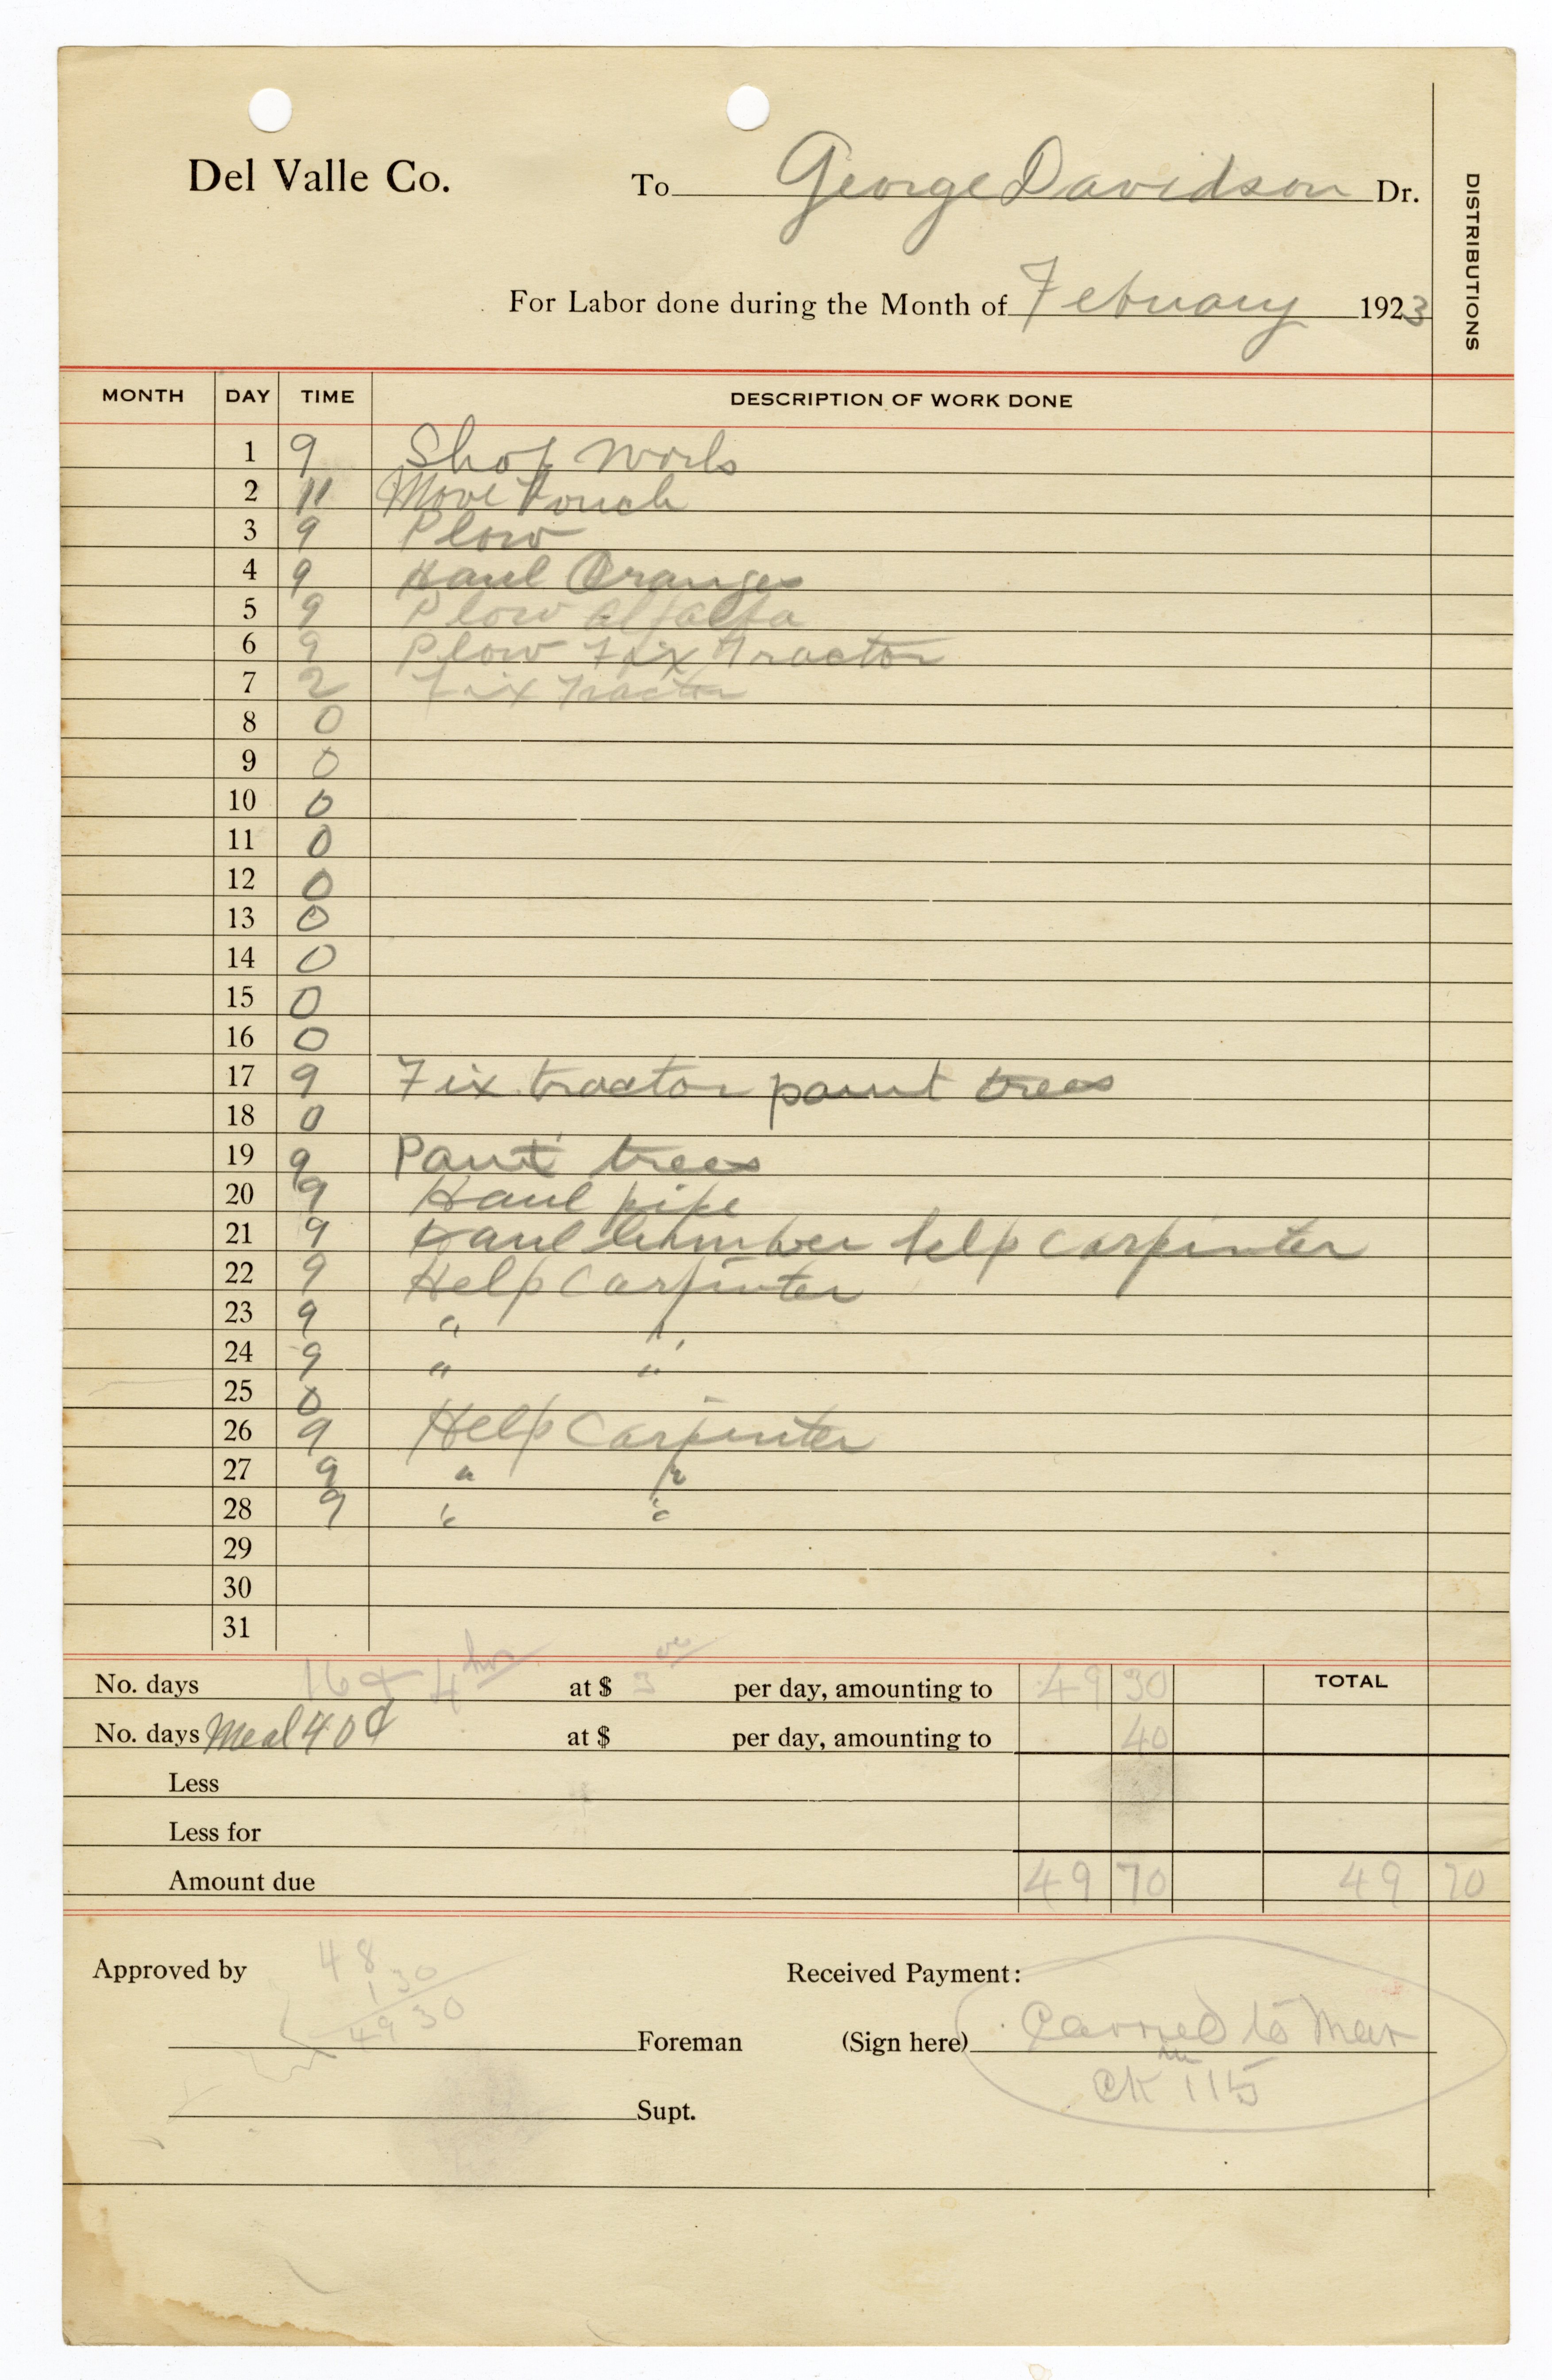 Del Valle Co. To George Davidson Dr.
DISTRIBUTIONS
For Labor done during the Month of February 1923
MONTH DAY TIME DESCRIPTION OF WORK DONE
1 9 Shop work
2 11 Move
3 9 Plow
4 9 Haul Oranges
5 9 Plow alfalfa
6 9 Plow Fix Tractor
7 2 Fix Tractor
8 0
9 0
10 0
11 0
12 0
13 0
14 0
15 0
16 0
17 9 Fix tractor paint trees
18 0
19 9 Paint trees
20 9 Haul pipe
21 9 Haul lumber help carpinter
22 9 Help Carpinter
23 9 " "
24 9 " "
25 0
26 9 Help Carpinter
27 9 " "
28 9 " "
29
30
31
No. days 16 & 4 hrs at $ 3 00 per day, amounting to 49 30 TOTAL
No. days Meal 40¢ at $ per day, amounting to 40
Less
Less for
Amount due 49 70 49 70
Approved by 48
1 30
49 30
Received Payment:
Foreman (Sign here) Carried to Mar
CK 115
Supt.